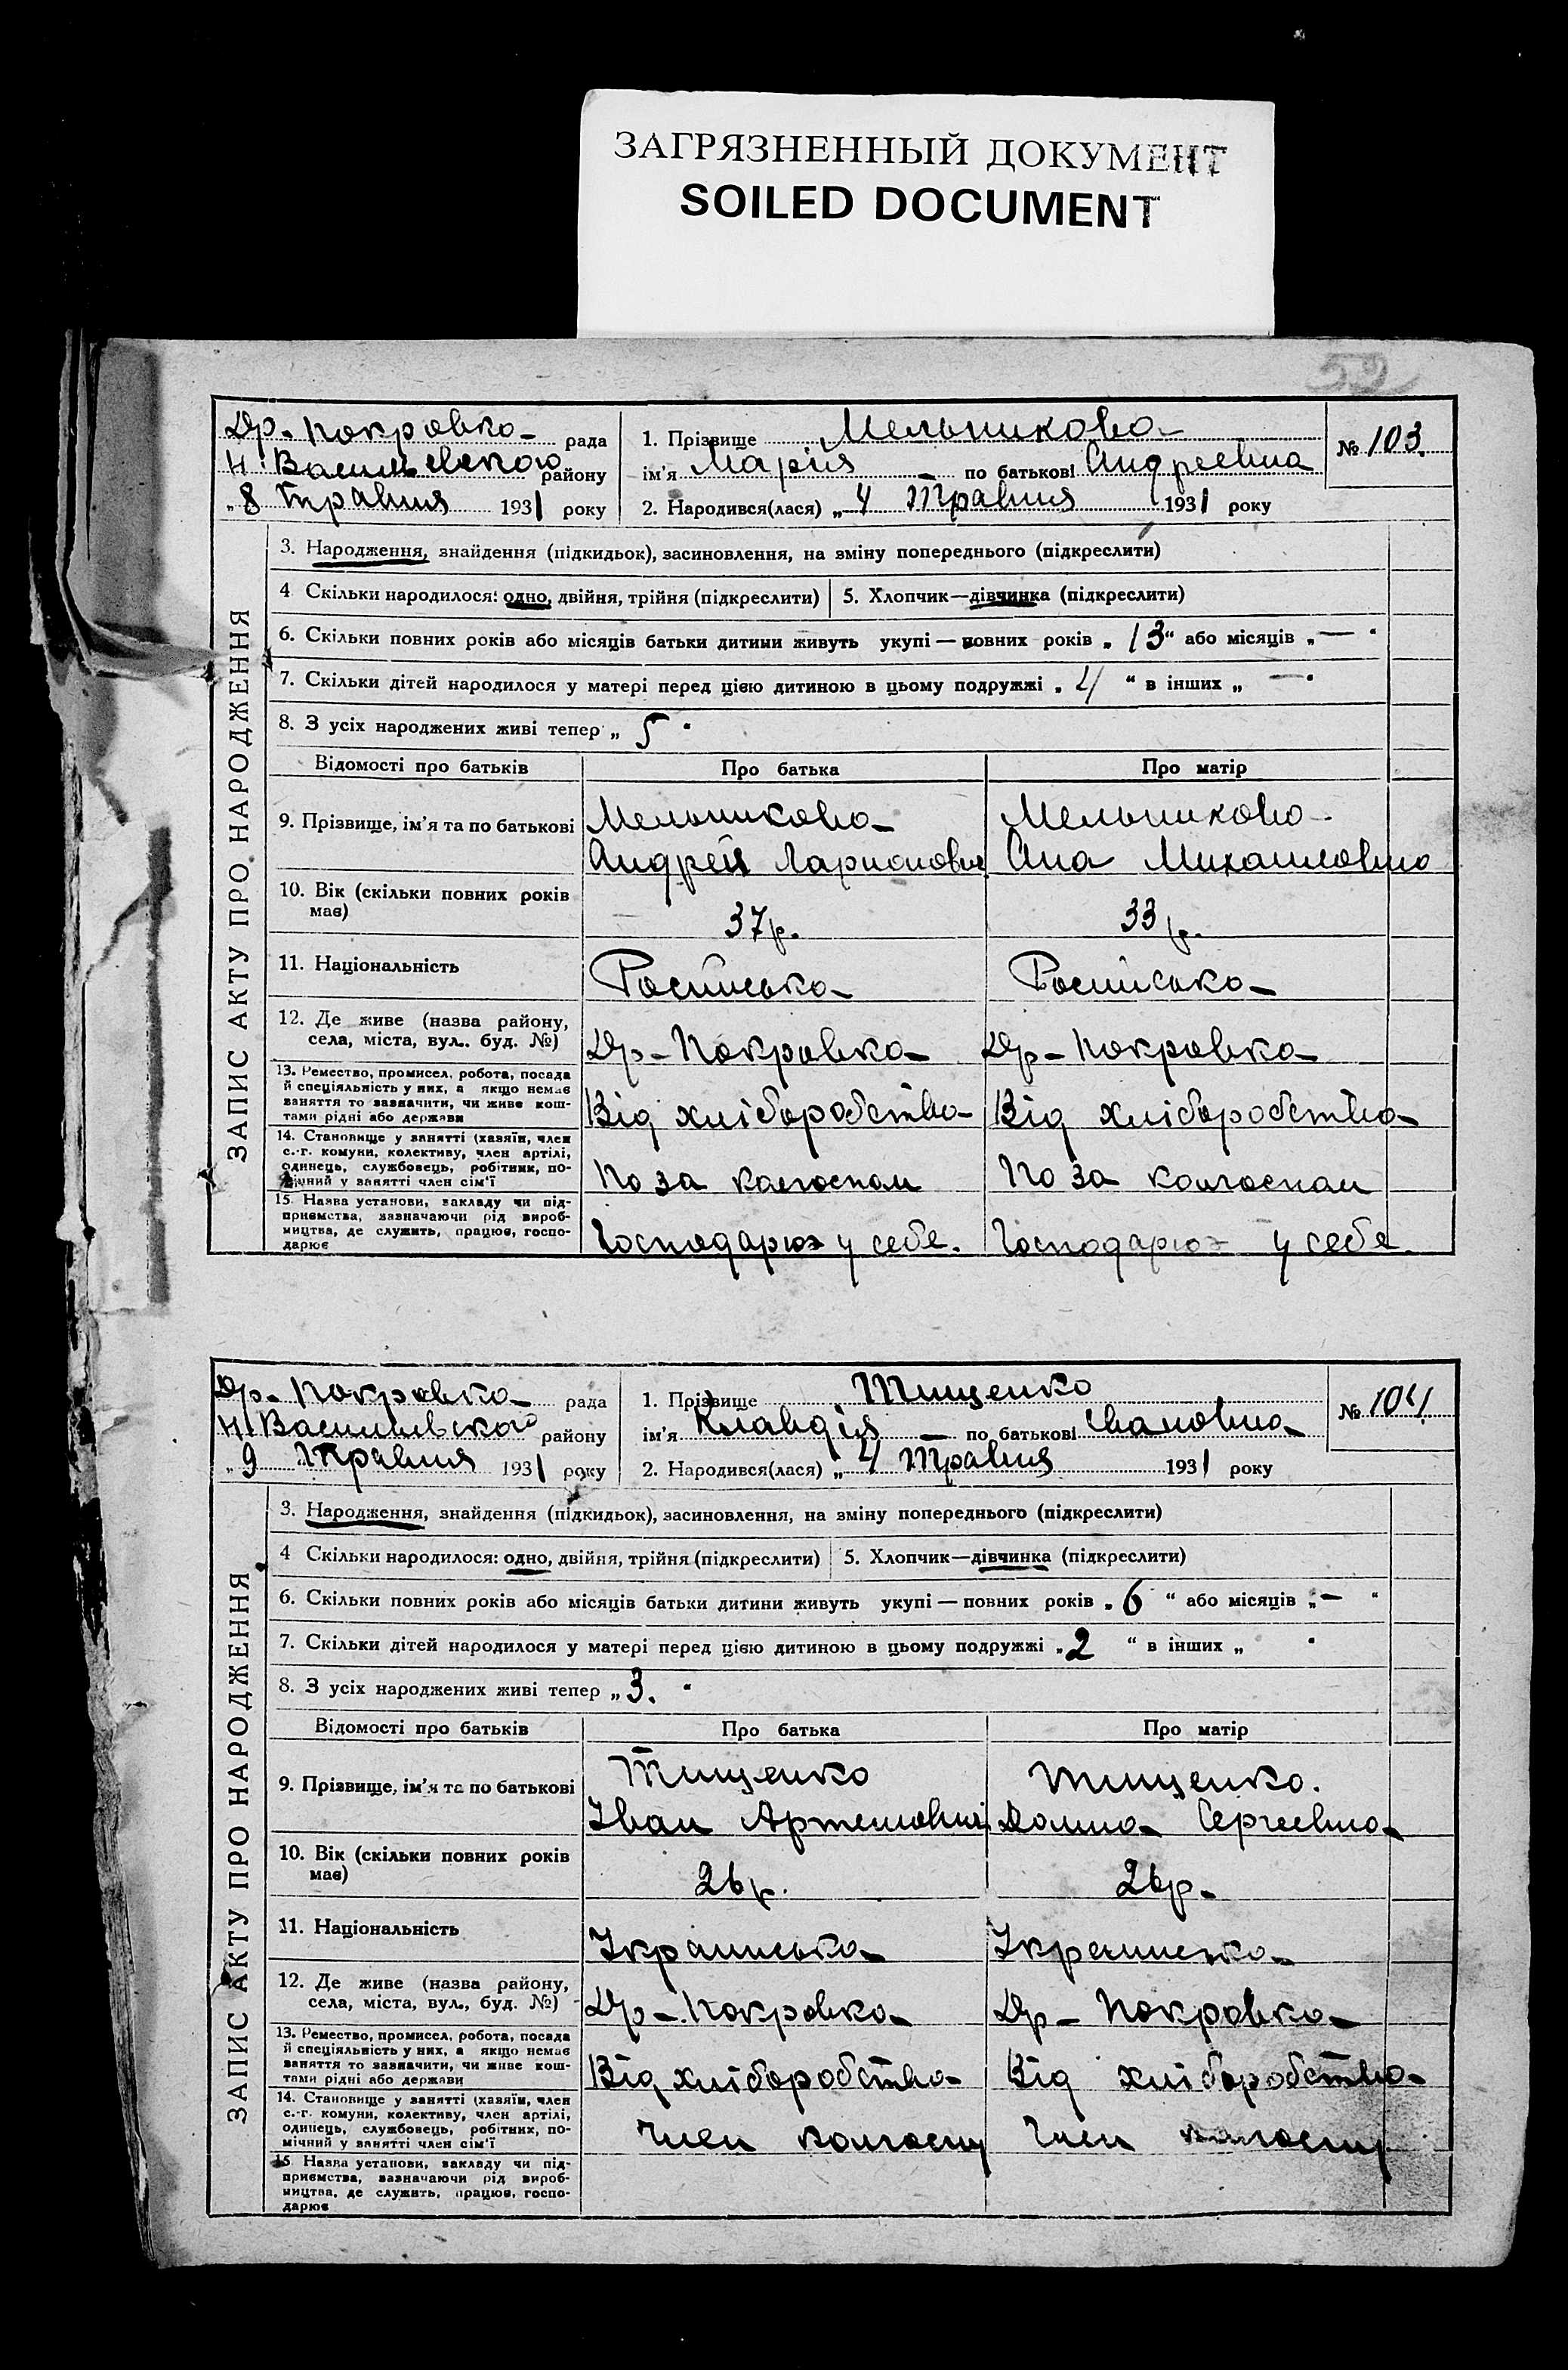 ЗАГРЯЗНЕННЫЙ ДОКУМЕНТ
SOILED DOCUMENT
52
Др-Покровка рада
Н. Васильевского району
„8 травня 1931 року
1. Прізвище Мельникова
ім'я Марія по батькові Андреевна
2. Народився(лася) „4 травня 1931 року
№ 103.
ЗАПИС АКТУ ПРО НАРОДЖЕННЯ
3. Народження, знайдення (підкидьок), засиновлення, на зміну попереднього (підкреслити)
4 Скільки народилося: одно, двійня, трійня (підкреслити) 5. Хлопчик—дівчинка (підкреслити)
6. Скільки повних років або місяців батьки дитини живуть укупі — повних років „ 13 “ або місяців „ — “
7. Скільки дітей народилося у матері перед цією дитиною в цьому подружжі „ 4 “ в інших „ — “
8. З усіх народжених живі тепер „ 5 “
Відомості про батьків Про батька Про матір
9. Прізвище, ім'я та по батькові Мельникова Мельникова
Андрей Ларионович Ана Михаиловна
10. Вік (скільки повних років
має) 37 р. 33 р.
11. Національність Росийська Росийська
12. Де живе (назва району,
села, міста, вул.. буд. №) Др-Покровка Др-Покровка
13. Ремество, промисел, робота, посада
й спеціяльність у них, а якщо немає
заняття то зазначити, чи живе кош-
тами рідні або держави Від хліборобства Від хліборобства
14. Становище у занятті (хазяїн, член
с.-г. комуни, колективу, член артілі,
одинець, службовець, робітник, по-
мічний у занятті член сім'ї По за колгоспом По за колгоспом
15. Назва установи, закладу чи під-
приємства, зазначаючи рід вироб-
ництва, де служить, працює, госпо-
дарює Господарює у себе. Господарює у себе.
Др-Покровка рада
Н. Васильевского району
„9 травня 1931 року
1. Прізвище Тищенко
ім'я Клавдія по батькові Ивановна
2. Народився(лася) „4 травня 1931 року
№ 104.
ЗАПИС АКТУ ПРО НАРОДЖЕННЯ
3. Народження, знайдення (підкидьок), засиновлення, на зміну попереднього (підкреслити)
4 Скільки народилося: одно, двійня, трійня (підкреслити) 5. Хлопчик—дівчинка (підкреслити)
6. Скільки повних років або місяців батьки дитини живуть укупі — повних років „ 6 “ або місяців „ — “
7. Скільки дітей народилося у матері перед цією дитиною в цьому подружжі „ 2 “ в інших „ “
8. З усіх народжених живі тепер „ 3. “
Відомості про батьків Про батька Про матір
9. Прізвище, ім'я та по батькові Тищенко Тищенко.
Іван Артемович Домна Сергеевна
10. Вік (скільки повних років
має) 26 р. 26 р.
11. Національність Украинська Украинська
12. Де живе (назва району,
села, міста, вул., буд. №) Др-Покровка Др-Покровка
13. Ремество, промисел, робота, посада
й спеціяльність у них, а якщо немає
заняття то зазначити, чи живе кош-
тами рідні або держави Від хліборобства Від хліборобства
14. Становище у занятті (хазяїн, член
с.-г. комуни, колективу, член артілі,
одинець, службовець, робітник, по-
мічний у занятті член сім'ї Член колгоспу Член колгоспу
15. Назва установи, закладу чи під-
приємства, зазначаючи рід вироб-
ництва, де служить, працює, госпо-
дарює